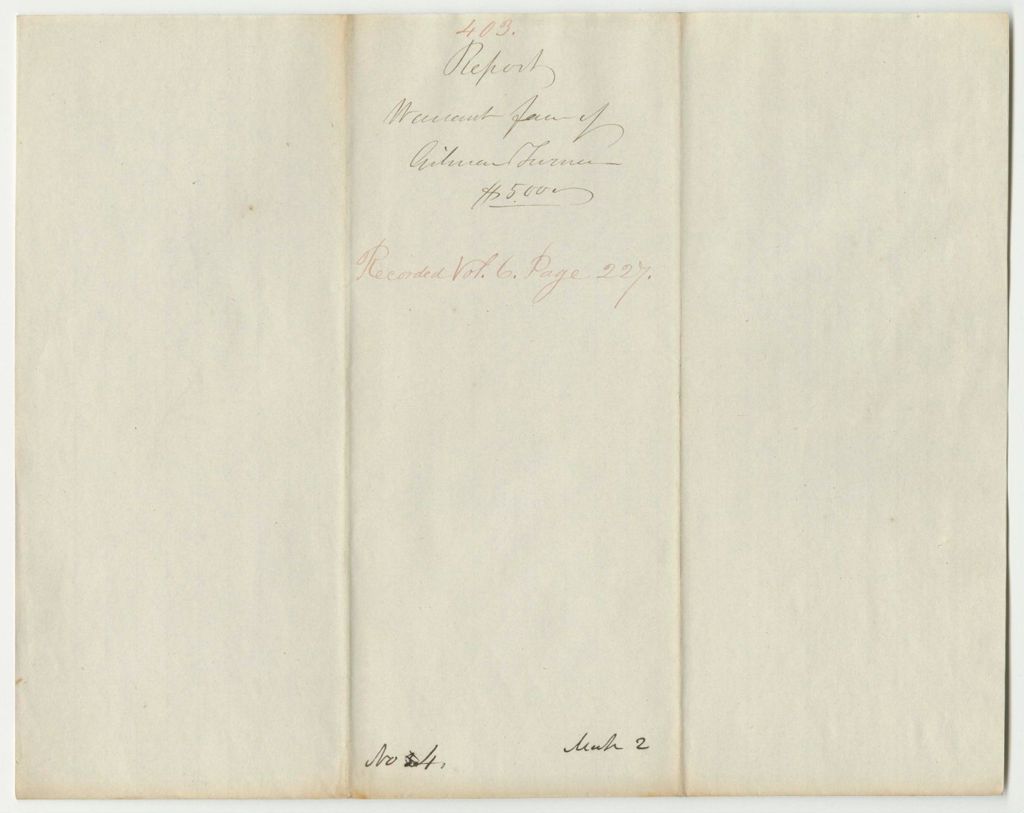 403.
Report
Warrant favr of
Gilman Turner
$5.00
Recorded Vol. 6. Page 227.
No 4.